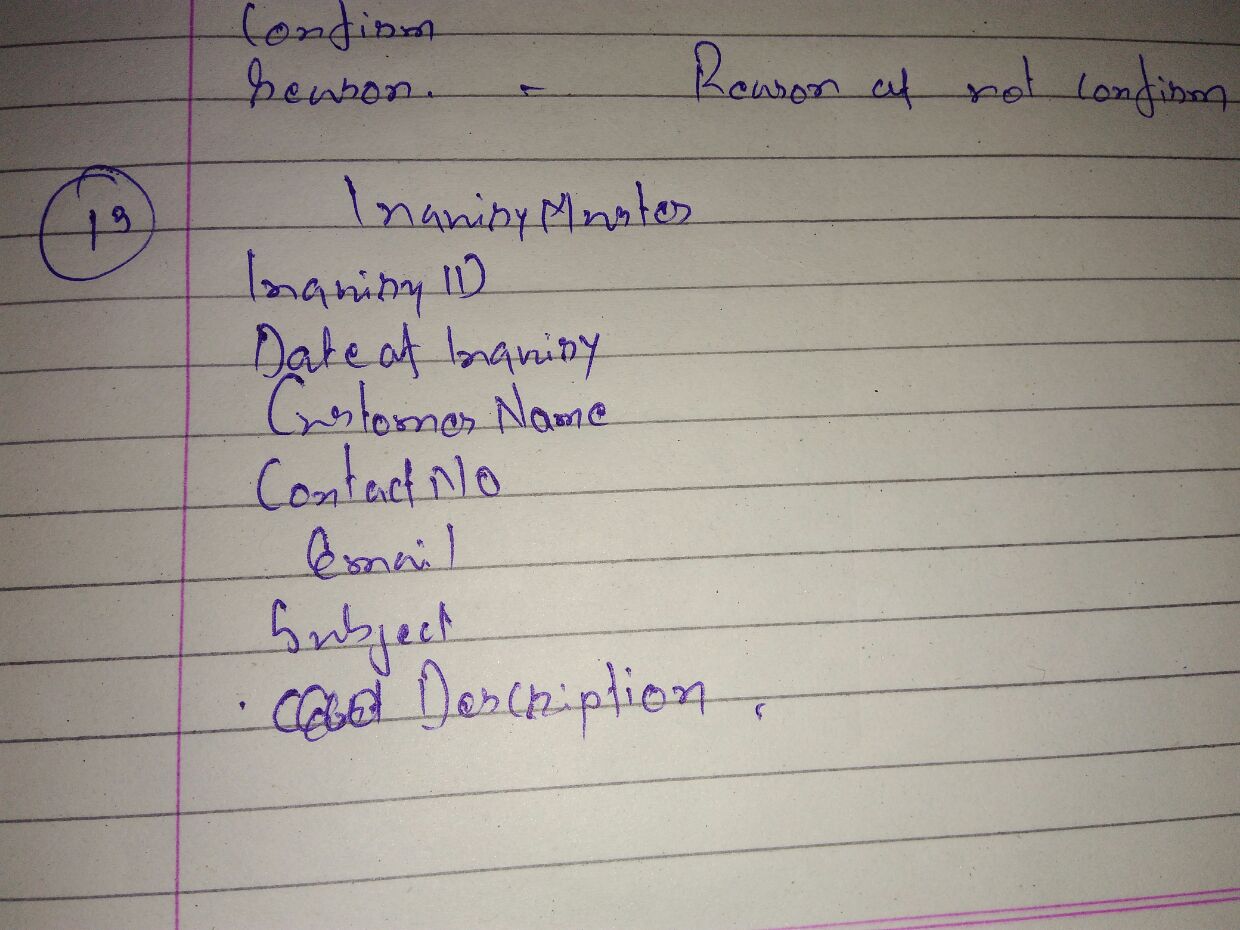 Confirm
Reason. - Reason of not confirm
13 Inquiry Master
Inquiry ID
Date of Inquiry
Customer Name
Contact No
Email
Subject
Description.